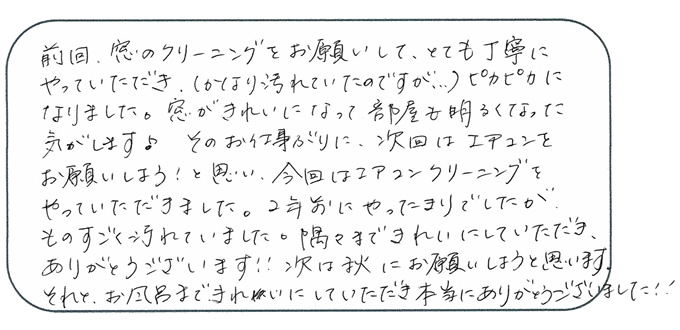 前回、窓のクリーニングをお願いして、とても丁寧に
やっていただき、(かなり汚れていたのですが…)ピカピカに
なりました。窓がきれいになって部屋も明るくなった
気がします♪ そのお仕事ぶりに、次回はエアコンを
お願いしよう!と思い、今回はエアコンクリーニングを
やっていただきました。2年前にやったきりでしたが、
ものすごく汚れていました。隅々まできれいにしていただき、
ありがとうございます!! 次は秋にお願いしようと思います。
それと、お風呂まできれいにしていただき本当にありがとうございました!!